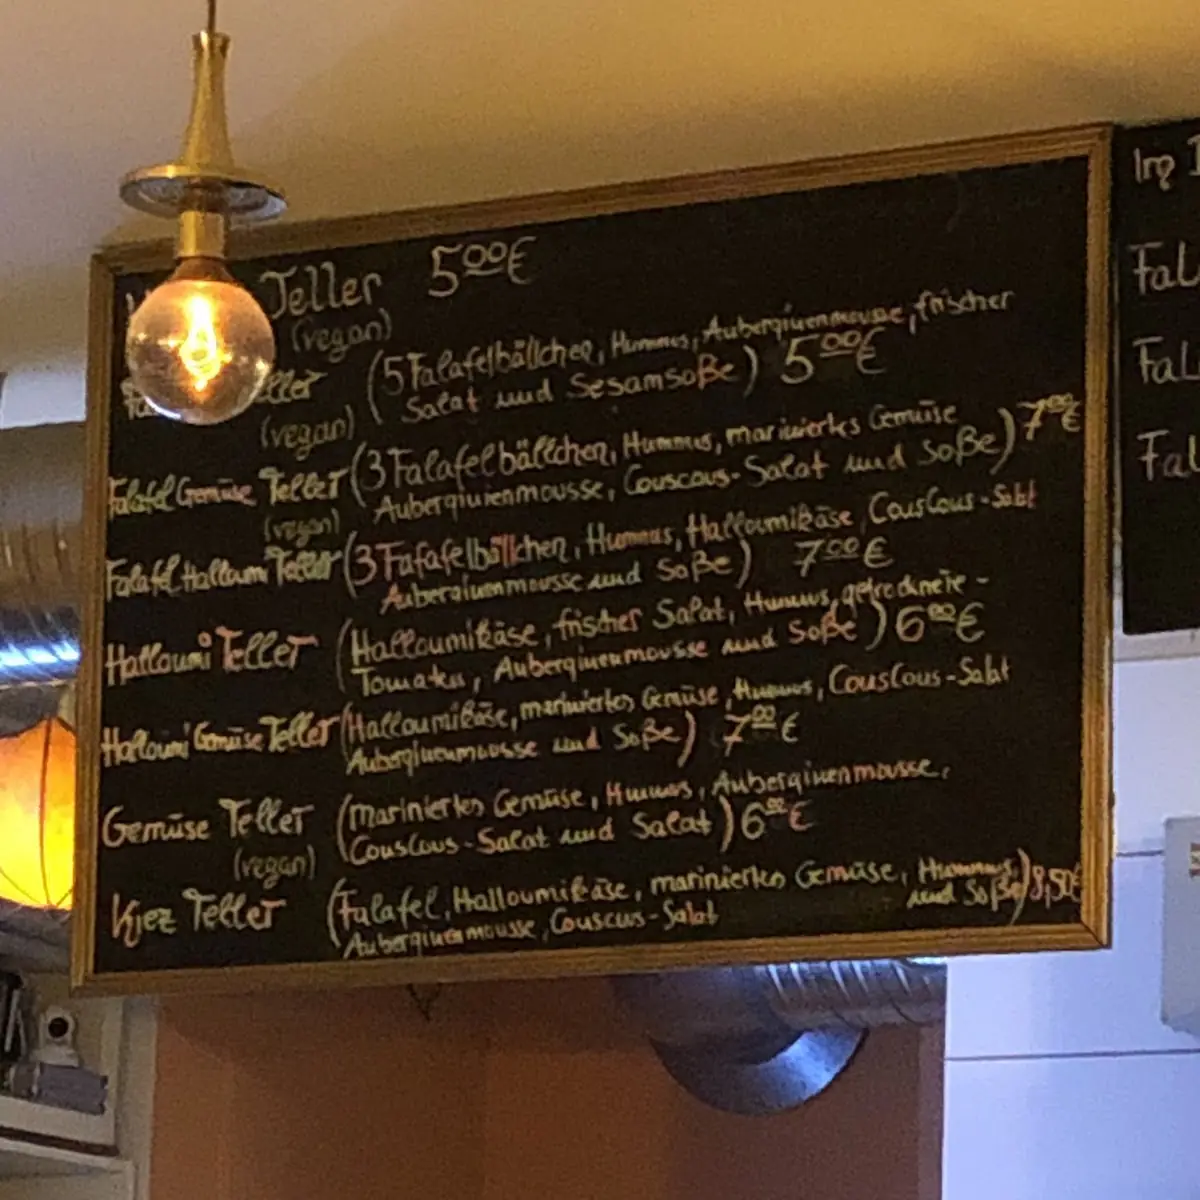 Teller 5⁰⁰€
(vegan)
(5 Falafelbällchen, Hummus, Auberginenmousse, frischer
Salat und Sesamsoße) 5⁰⁰€
(vegan)
Falafel Gemüse Teller (3 Falafelbällchen, Hummus, mariniertes Gemüse
Auberginienmousse, Couscous-Salat und Soße) 7⁰⁰€
(vegan)
Falafel Halloumi Teller (3 Fafafelbällchen, Hummus, Halloumikäse, CousCous-Salat
Auberginenmousse und Soße) 7⁰⁰€
Halloumi Teller (Halloumikäse, frischer Salat, Humus, getrocknete-
Tomaten, Auberginenmousse und Soße) 6⁰⁰€
Halloumi Gemüse Teller (Halloumikäse, mariniertes Gemüse, Humus, CousCous-Salat
Auberginenmousse und Soße) 7⁰⁰€
Gemüse Teller (mariniertes Gemüse, Humus, Auberginenmousse,
(vegan) CousCous-Salat und Salat) 6⁰⁰€
Kiez Teller (Falafel, Halloumikäse, mariniertes Gemüse, Hummus,
Auberginenmousse, Couscus-Salat und Soße) 8,50€
Fal
Fal
Fal